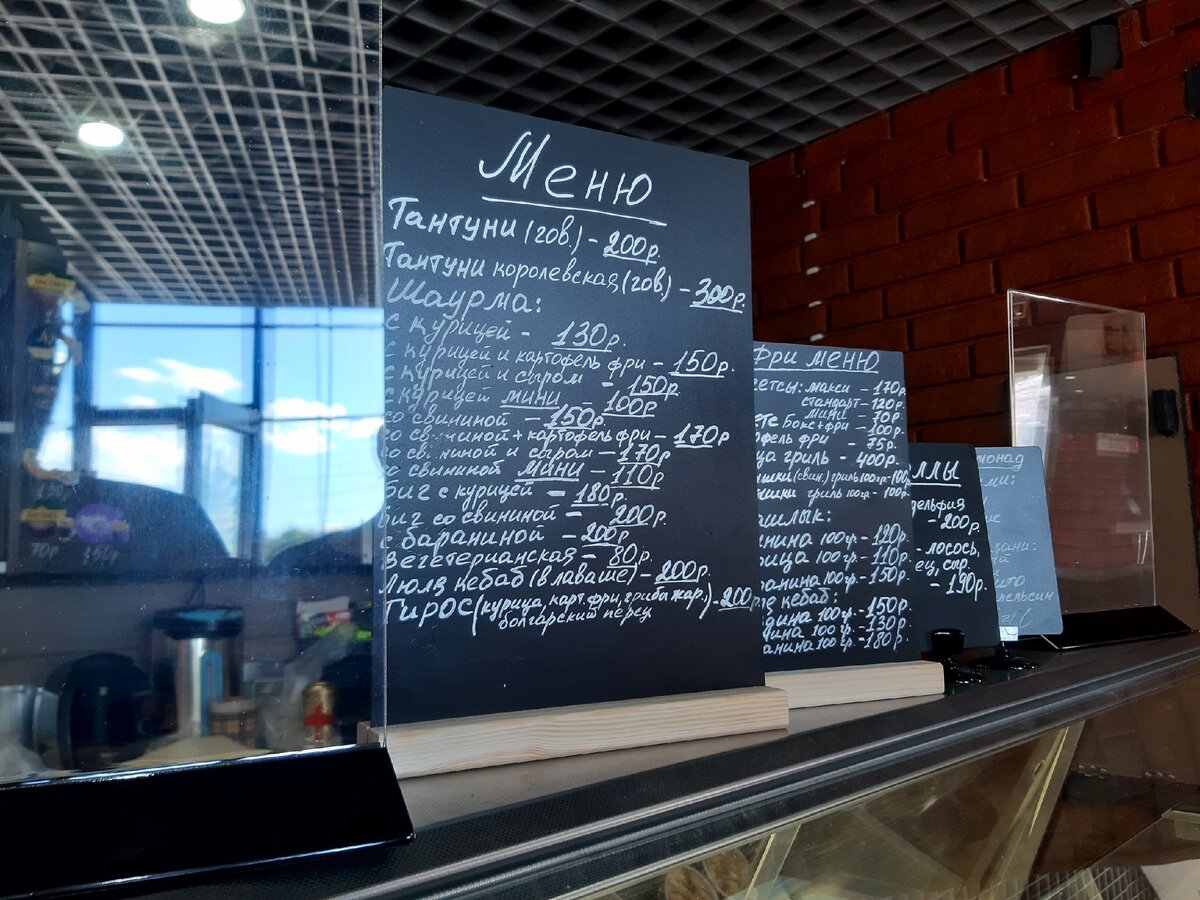 Меню
Тантуни (гов.) - 200р.
Тантуни королевская (гов) - 300р.
Шаурма:
с курицей - 130р.
с курицей и картофель фри - 150р.
с курицей и сыром - 150р.
с курицей мини - 100р
со свининой - 150р.
со свининой + картофель фри - 170р
со свининой и сыром - 170р.
со свининой мини - 110р
биг с курицей - 180р.
биг со свининой - 200р.
с бараниной - 200р
Вегетерианская - 80р.
Люля кебаб (в лаваше) - 200р.
Гирос (курица, карт.фри, грибы жар.,) - 200р
болгарский перец
Фри меню
макси - 170р
стандарт - 120р
мини - 70р
Бокс + фри - 100р.
фри - 75р.
гриль - 400р.
(свин.) гриль 100гр - 100р
гриль 100гр - 100р.
100гр - 120р.
100гр - 110р.
100гр - 150р.
кебаб:
100гр. - 150р
100гр. - 130р.
100гр. - 180р.
- 200р.
- лосось,
сыр.
- 190р.
70р 150р